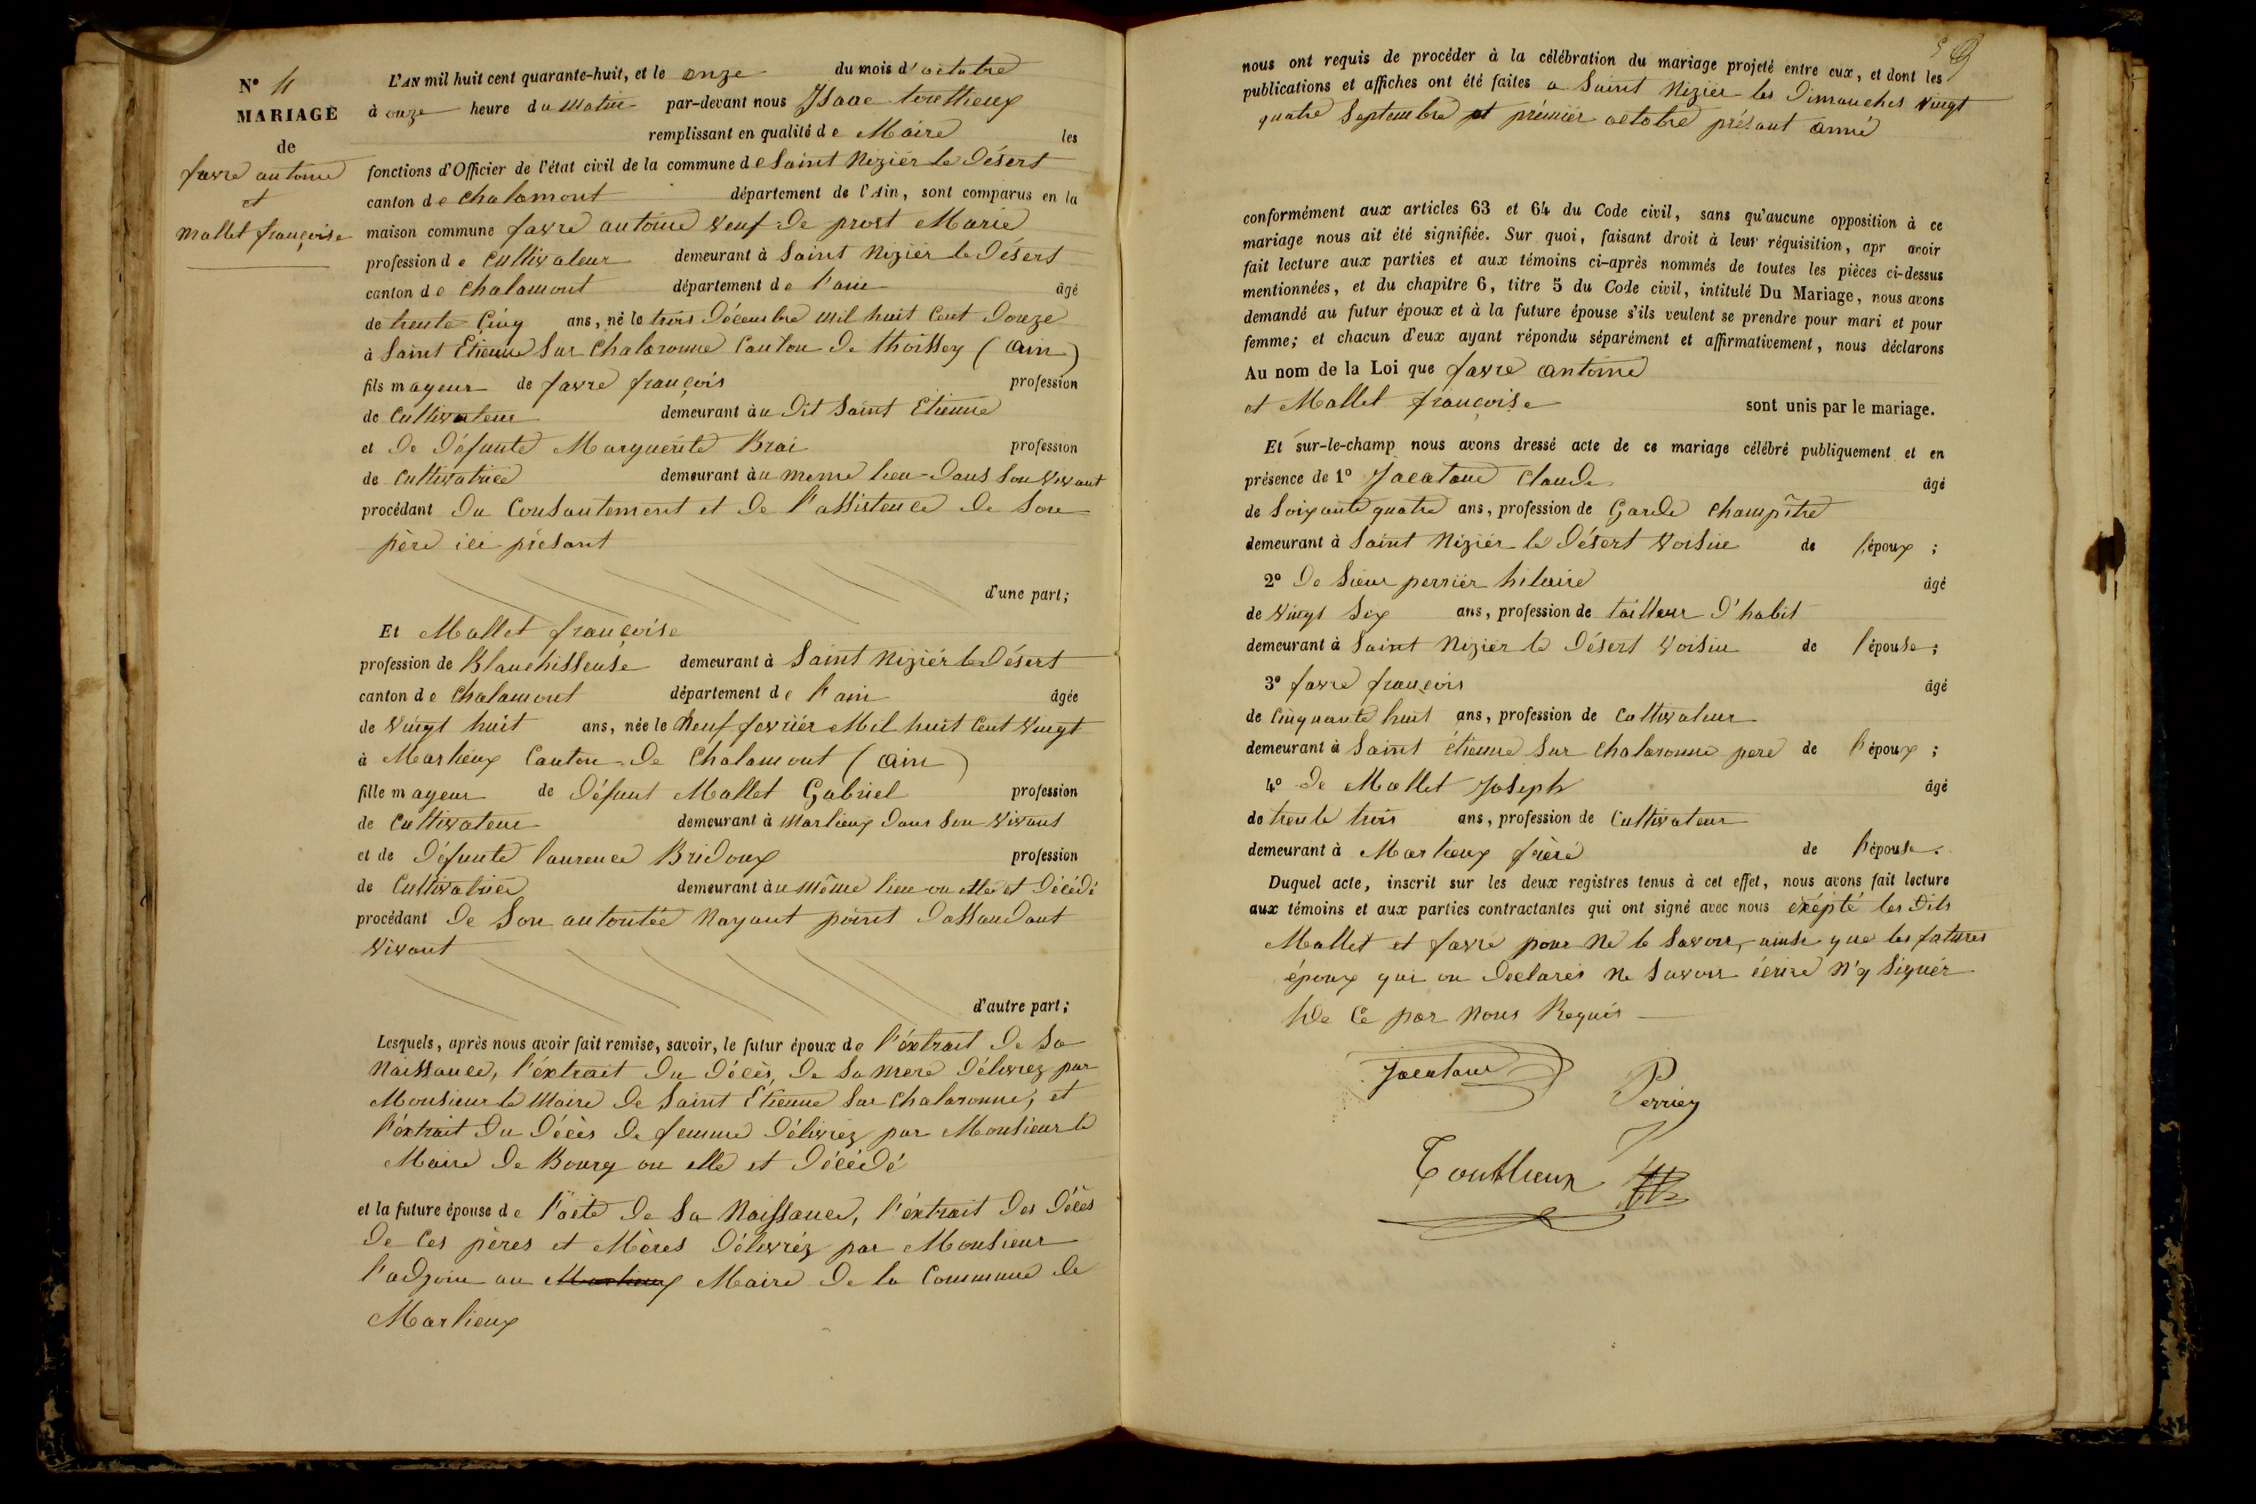 N° 4
MARIAGE
de
favre antoine
et
Mallet françoise
L'AN mil huit cent quarante-huit, et le onze du mois d'octobre
à onze heure du Matin par-devant nous Isaac touttieux
remplissant en qualité de Maire les
fonctions d'Officier de l'état civil de la commune de Saint Nizièr le Désert
canton de chalamont département de l'Ain, sont comparus en la
maison commune favre antoine veuf de prost Marie
profession de Cultivateur demeurant à Saint Nizièr le Désert
canton de chalamont département de l'ain âgé
de trente Cinq ans, né le trois Décembre mil huit Cent Douze
à Saint Etienne Sur Chalaronne Canton de thoissey (Ain)
fils mayeur de favre françois profession
de Cultivateur demeurant àu Dit Saint Etienne
et De Défunte Marguerite Brai profession
de Cultivatrice demeurant àu meme lieu Dans Son Vivant
procédant Du Consantement et De l'assistence De Son
père ici présant
d'une part;
Et Mallet françoise
profession de Blanchisseuse demeurant à Saint Nizièr le Désert
canton de chalamont département de l'ain âgée
de Vingt huit ans, née le Neuf fevrièr Mil huit Cent Vingt
à Marlieux Canton De Chalamont (Ain)
fille mayeur de Défunt Mallet Gabriel profession
de Cultivateur demeurant à Marlieux Dans Son Vivant
et de Défunte laurence Bridoux profession
de Cultivatrice demeurant àu même lieu ou elle et Décédé
procédant De Son autoritée Nayant point Dassandant
Vivant
d'autre part;
Lesquels, après nous avoir fait remise, savoir, le futur époux de l'éxtrait De Sa
Naissance, l'éxtrait Du Décès De Sa mere Délivrez par
Monsieur le Maire De Saint Etienne Sur Chalaronne, et
l'éxtrait Du Décès De femme Délivrez par Monsieur le
Maire De Bourg ou elle et Décédé
et la future épouse de l'acte De Sa Naissance, l'éxtrait Des Décès
De Ces pères et Mères Délivréz par Monsieur
l'adjoin au Marlieux Maire De la Commune De
Marlieux
nous ont requis de procéder à la célébration du mariage projeté entre eux, et dont les
publications et affiches ont été faites a Saint Nizièr les Dimanches Vingt
quatre Septembre et prémièr octobre présant anné
conformément aux articles 63 et 64 du Code civil, sans qu'aucune opposition à ce
mariage nous ait été signifiée. Sur quoi, faisant droit à leur réquisition, apr avoir
fait lecture aux parties et aux témoins ci-après nommés de toutes les pièces ci-dessus
mentionnées, et du chapitre 6, titre 5 du Code civil, intitulé Du Mariage, nous avons
demandé au futur époux et à la future épouse s'ils veulent se prendre pour mari et pour
femme; et chacun d'eux ayant répondu séparément et affirmativement, nous déclarons
Au nom de la Loi que favre antoine
et Mallet françoise sont unis par le mariage.
Et sur-le-champ nous avons dressé acte de ce mariage célébré publiquement et en
présence de 1° Jacatard Claude âgé
de Soixante quatre ans, profession de Garde champêtre
demeurant à Saint Nizièr le Désert Voisin de l'époux;
2° De Sieur perrièr hilaire âgé
de Vingt Six ans, profession de tailleur D'habit
demeurant à Saint Nizièr le Désert Voisin de l'épouse;
3° favre françois âgé
de Cinquante huit ans, profession de Cultivateur
demeurant à Saint étienne Sur chalaronne pere de l'époux;
4° De Mallet Joseph âgé
de trente trois ans, profession de Cultivateur
demeurant à Marlieux frère de l'épouse.
Duquel acte, inscrit sur les deux registres tenus à cet effet, nous avons fait lecture
aux témoins et aux parties contractantes qui ont signé avec nous éxépté les Dits
Mallet et favre pour Ne le Savoir, ainsi que les futures
époux qui on Declarés Ne Savoir écrire N'y Signér
De Ce par Nous Requis
Perrier